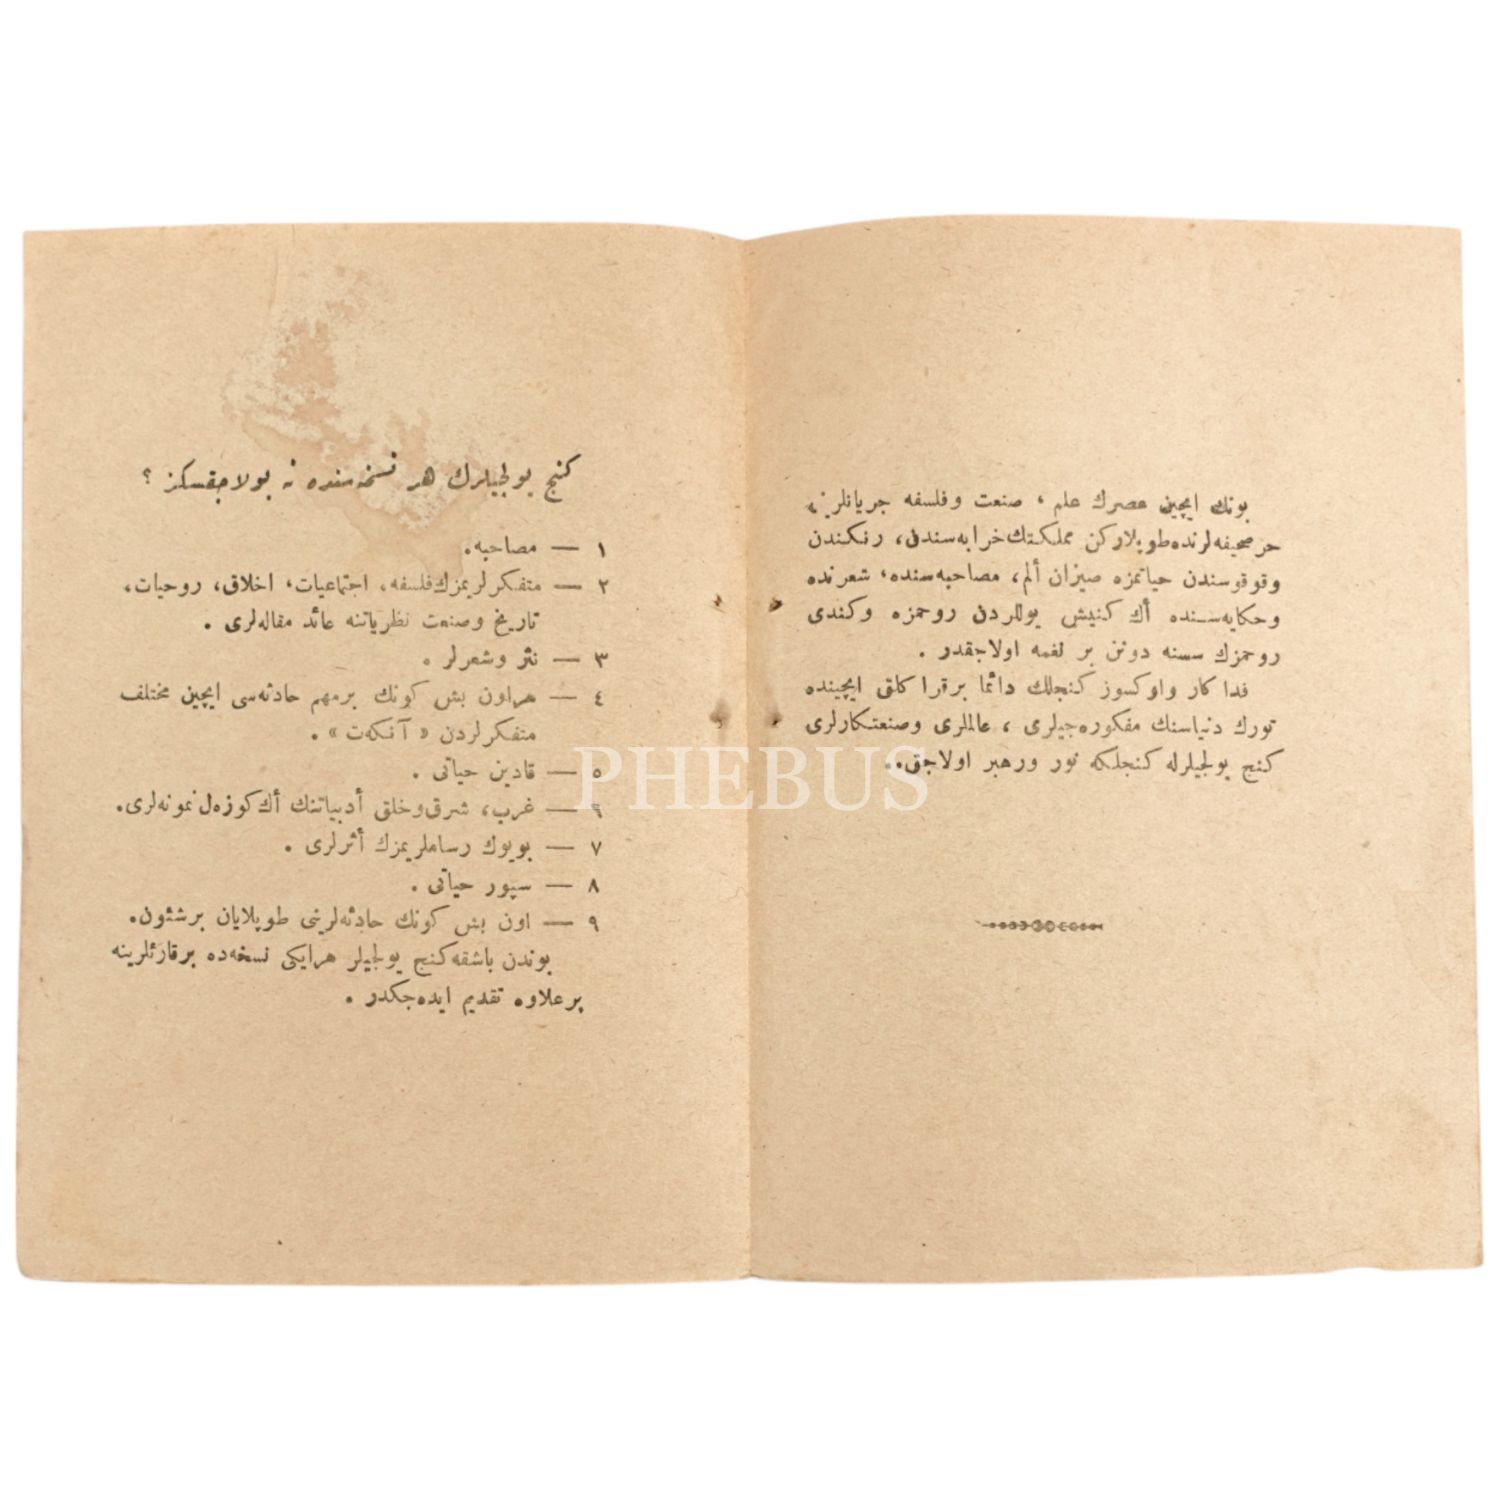 بونك ایچین عصرك علم ، صنعت وفلسفه جریانلرینه
حر صحیفه‌لرنده طوپلاركن مملكتك خرابه‌سندن، رنكندن
وقوقوسندن حیاتمزه صیزان ألم، مصاحبه‌سنده، شعرنده
وحكایه‌سنده أك كنیش یوللردن روحمزه وكندی
روحمزك سسنه دونن بر نغمه اولاجقدر .
فدا كار واوكسوز كنجلك دائما برقرا كلق ایچینده
تورك دنیاسنك مفكوره‌جیلری ، عالملری وصنعتكارلری
كنج یولجیلرله كنجلكه نور ورهبر اولاجق..
كنج یولجیلرك هر نسخه‌سنده نه بولاجقسكز ؟
١ — مصاحبه.
٢ — متفكرلریمزك فلسفه، اجتماعیات، اخلاق، روحیات،
تاریخ وصنعت نظریاتنه عائد مقاله‌لری .
٣ — نثر وشعرلر .
٤ — هراون بش كونك برمهم حادثه‌سی ایچین مختلف
متفكرلردن « آنكه‌ت » .
٥ — قادین حیاتی .
٦ — غرب، شرق وخلق أدبیاتنك أك كوزه‌ل نمونه‌لری.
٧ — بویوك رساملریمزك أثرلری .
٨ — سپور حیاتی .
٩ — اون بش كونك حادثه‌لرینی طوپلایان برشئون.
بوندن باشقه كنج یولجیلر هرایكی نسخه‌ده برقارئلرینه
برعلاوه تقدیم ایده‌جكدر .
PHEBUS